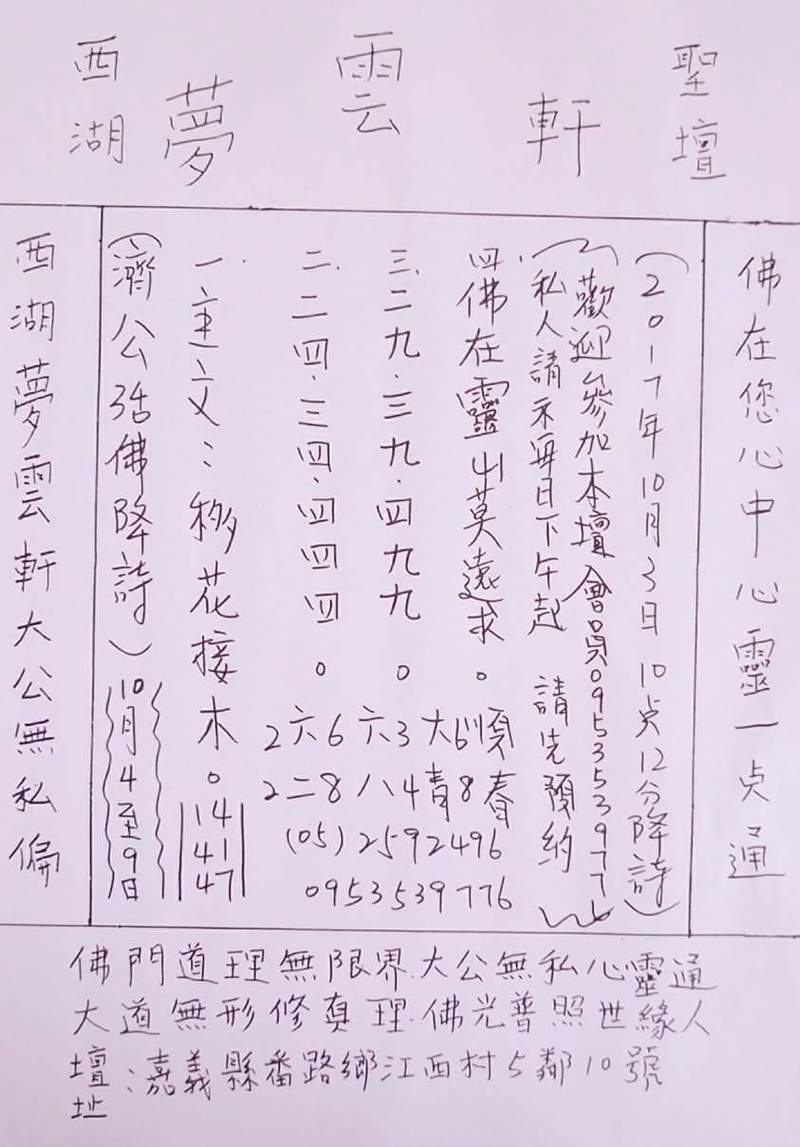 西湖 夢雲軒 聖壇
佛在您心中心靈一点通
(2017年10月3日10点12分降詩)
(歡迎參加本壇會員0953539776
私人請示每日下午起 請先預約)
四.佛在靈山莫遠求。
三.二九.三九.四九九。
二.二四.三四.四四四。
一.主文:移花接木。14 41 47
(濟公活佛降詩)10月4至9日
2六6 六3大6順
2二8 八4青8春
(05)2592496
0953539776
西湖夢雲軒大公無私偏
佛門道理無限界.大公無私心靈通
大道無形修真理.佛光普照世緣人
壇址:嘉義縣番路鄉江西村5鄰10號